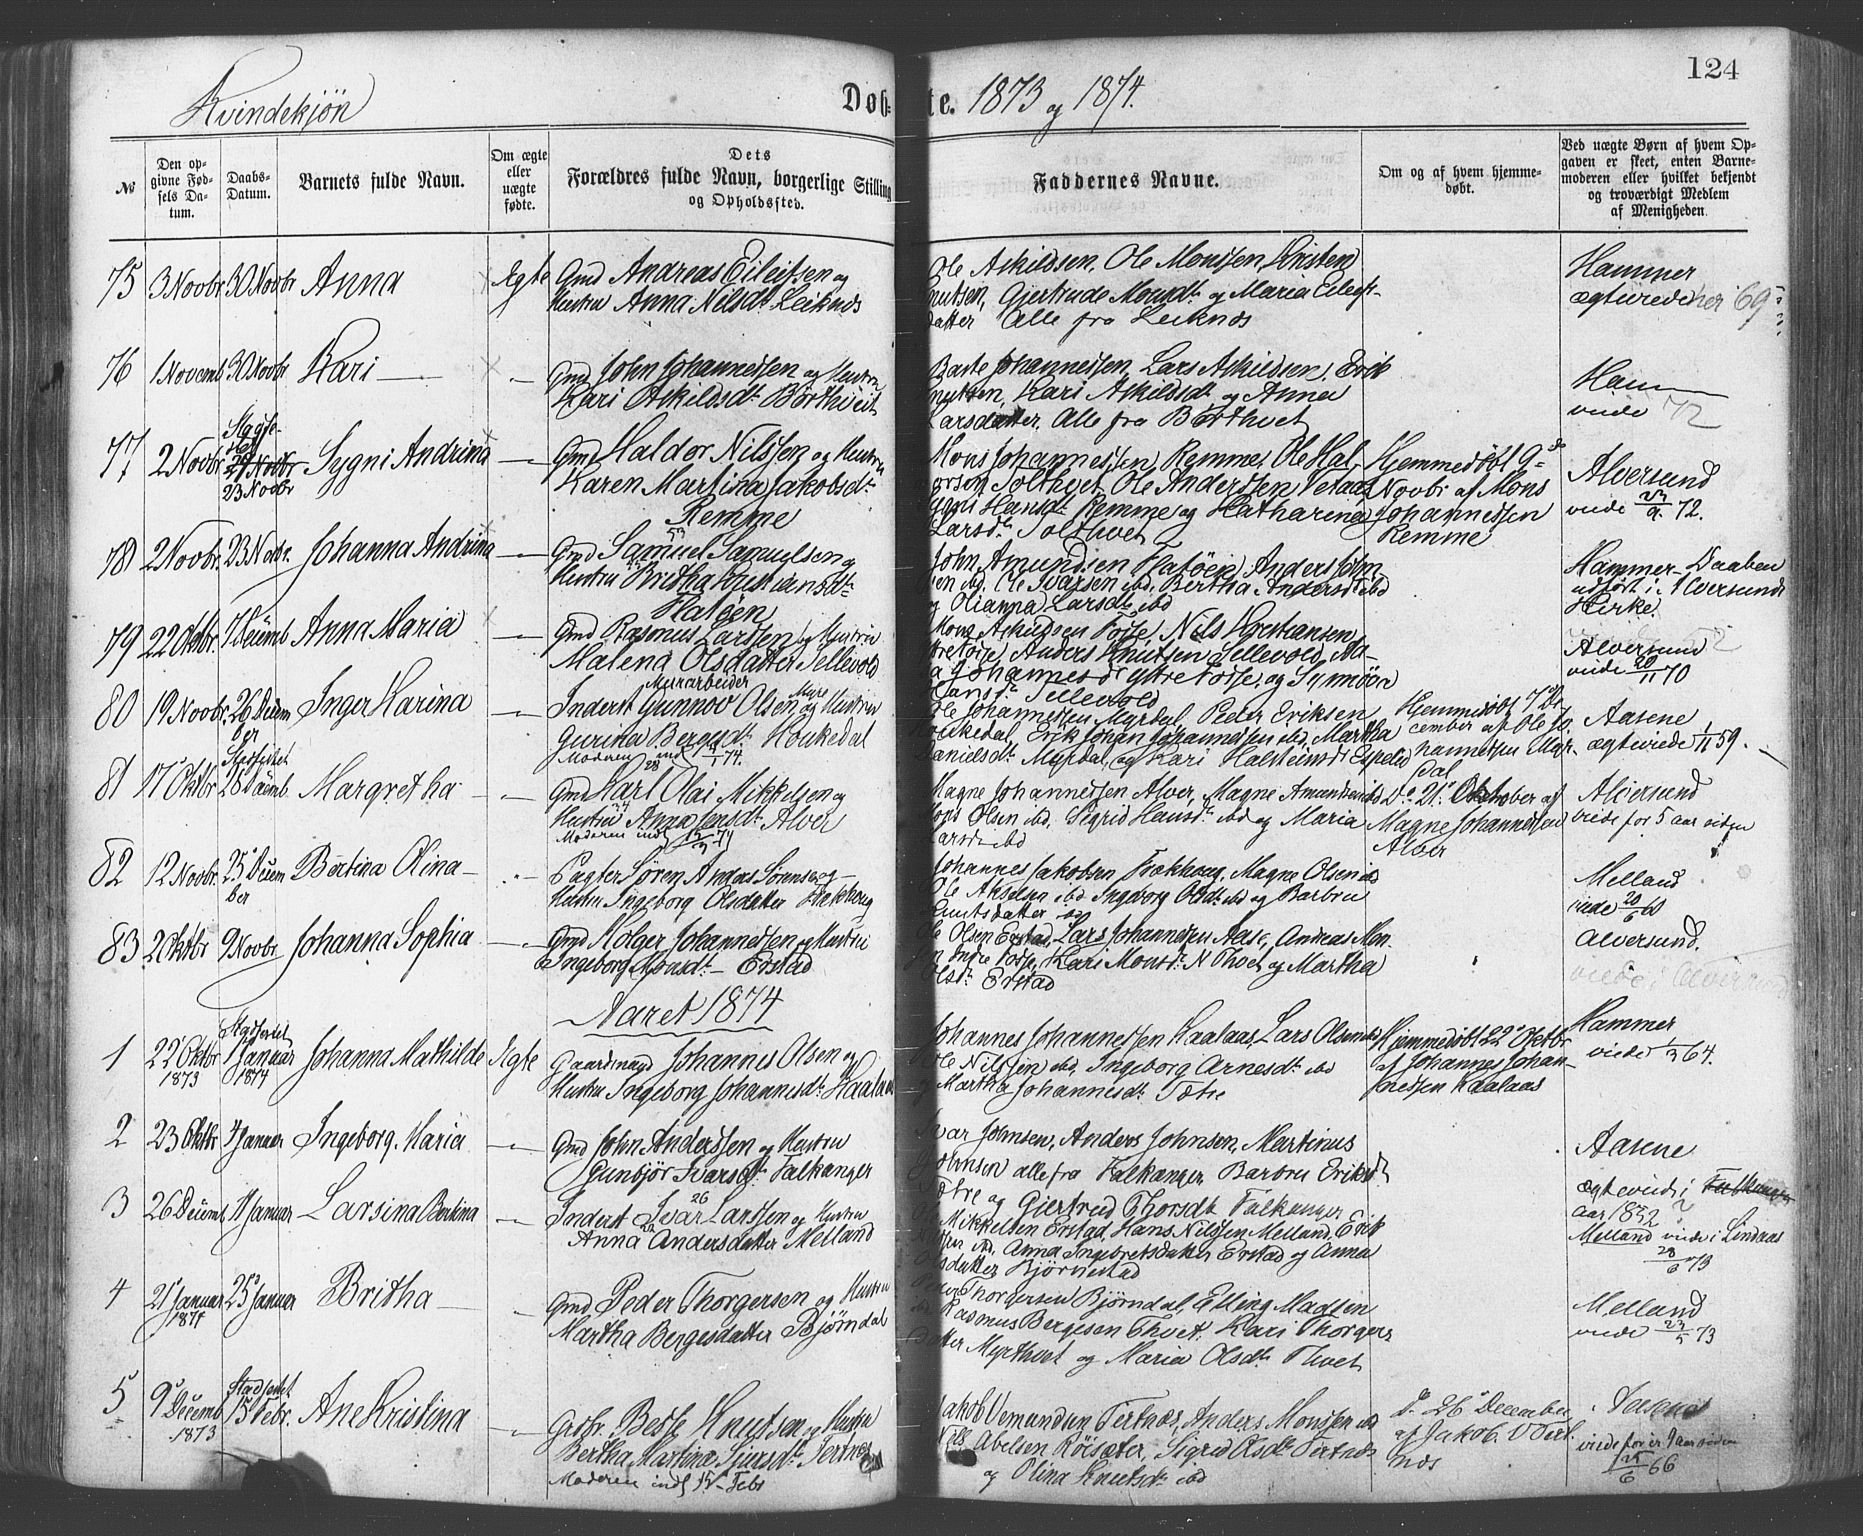 124
Kvindekjön
Døb-te. 1873 og 1874.
№
Den opgivne Fødsels Datum.
Daabs-Datum.
Barnets fulde Navn.
Om ægte eller uægte fødte.
Dets Forældres fulde Navn, borgerlige Stilling og Opholdssted.
Faddernes Navne.
Om og af hvem hjemmedøbt.
Ved uægte Børn af hvem Opgaven er skeet, enten Barnemoderen eller hvilket bekjendt og troværdigt Medlem af Menigheden.
75 3 Novbr 30 Novbr Anna Ægte Gmd Andreas Eileitsen og
Hustru Anna Nilsdt Leiknes
Ole Askildsen, Ole Monssen, Kristen
Knutsen, Gjertrude Monsdt og Maria Eileits-
datter Alle fra Leiknes
Hammer
ægteviede her 69
76 1 Novemb 30 Novbr Kari Gmd John Johannessen og Hustru
Kari Askildsdt Börthveit
Johannessen, Lars Askildsen, Erik
Knutsen, Kari Askildsdt og Anna
Larsdatter, Alle fra Börthvet
Ham
viede 72
77 2 Novbr 23 Novbr Sygni Andrina Gmd Haldor Nilssen og Hustru
Karen Martina Jakobsdt
Remme
Mons Johannessen Remme, Ole Hal
vorson Solthvet, Ole Anderssen Vetaas
Hansdt Remme og Katharina
Larsdt Solthvet
Hjemmedöbt 9de
Novbr af Mons
Johannessen
Remme
Alversund
viede 23/9 72.
78 2 Novbr. 23 Nobr. Johanna Andrina Gmd Samuel Samuelsen og
Hustru Britha
Flatöen
John Amundsen Flatöen, Anders John
sen ibd, Ole Ivarsen ibd, Bertha Andersdt ibd
og Olianna Larsdt ibd
Hammer Daaben
udført i Alversunds
Kirke.
79 22 Oktbr. 7 Decemb Anna Maria Gmd Rasmus Larssen og Hustru
Malena Olsdatter Sellevold
Mons Askildsen Fosse, Nils Kristiansen
Anders Knutsen Sellevold, Ma-
Johannesdt Ytre Fosse, og Symöon
Hansdt Sellevold
Alversund
viede 20/11 70
80 19 Novbr. 26 Decem
ber Inger Karina Murarbeider
Inderst Gunnov Olsen og Hustru
Gurina Bergesdt Houkedal
Moderen indl 74.
Ole Johannessen Myrdal, Peder Eriksen
Houkedal, Erik Johan Johannessen ibd, Martha
Danielsdt Myrdal, og Kari Halsteinsdt Espeled
Hjemmedöbt 7 De-
cember af Ole Jo-
hannessen Myr-
dal
Aasene
ægteviede 1/11 59.
81 17 Oktbr 26 Decemb. Margretha Gmd Karl Olai Mikkelsen og
Hustru Anna Jensdt Alver
Moderen indl 74
Magne Johannessen Alver, Magne Amundsen ibd
Mons Olsen ibd, Sigrid Hansdt ibd og Maria
Larsdt ibd
Do 21 Oktober af
Magne Johannessen
Alver
Alversund
viede for 5 aar siden
82 12 Novbr. 25 Decem
ber Bertina Olina Pagter Sören Anders Sörensen og
Hustru Ingeborg Olsdatter Fækhoug
Johannes Jakobsen Fækhoug, Magne Olsen ibd
Ole Akselsen ibd Ingeborg Olsdt ibd og Barbru
Knutsdatter ibd
Melland
viede 20/6 60
83 2 Oktbr 9 Novbr Johanna Sophia Gmd Holger Johannessen og Hustru
Ingeborg Monsdt Erstad
Ole Olsen Erstad, Lars Johannessen Aase, Andreas Mon-
sen Indre Fosse, Kari Monsdt N Thvet og Martha
Olsdt Erstad
Alversund.
viede i Alversund
Aaret 1874
1 22 Oktbr
1873 Stadfæstet
1 Januar
1874 Johanna Mathilde Ægte Gaardmand Johannes Olsen og
Hustru Ingeborg Johannesdt Kaalaas
Johannes Johannessen Kaalaas, Lars Olsen ibd
Ole Nilssen ibd, Ingeborg Arnesdt ibd
Martha Johannesdt Tætre
Hjemmedöbt 22 Oktbr
af Johannes Johan-
nessen Kaalaas
Hammer
viede 1/3 64.
2 23 Oktbr 4 Januar Ingeborg Maria Gmd John Anderssen og Hustru
Gunbjör Ivarsdt Falkanger
Ivar Johnsen, Anders Johnsen, Martinus
Johnsen alle fra Falkanger Barbru Eriksdt
Tætre og Gjertrud Thorsdt Falkanger
Aasene
ægteviede i
aar 1852
3 26 Decemb 11 Januar Larsina Bertina Inderst Ivar Larssen og Hustru
Anna Andersdatter Melland
Mikkelsen Erstad, Hans Nilssen Melland, Erik
ibd, Anna Ingebretsdatter Erstad og Anna
datter Björnestad
Melland viede i Lindaas
28/6 73
4 21 Januar
1874 25 Januar Britha Gmd Peder Thorgersen og Hustru
Martha Bergesdatter Björndal
Thorgersen Björndal, Elling Madsen
Rasmus Bergesen Thvet, Kari Thorgers
datter Myrthvet og Maria Olsdt Thvet
Melland
viede 23/5 73
5 9 Decemb
1873 Stadfæstet
15 Febr. Ane Kristina Grbr. Knutsen og Hustru
Bertha Martina Sjursdt Tertnes
Moderen indl 15 Febr
Jakob Vemundsen Tertnæs, Anders Monssen ibd
Nils Abelsen Röisæter, Sigrid Olsdt Tertnæs
og Olina Knutsdt ibd
D. 26 December
af Jakob V Tert-
næs
Aasene
viede for Aar siden
25/6 66